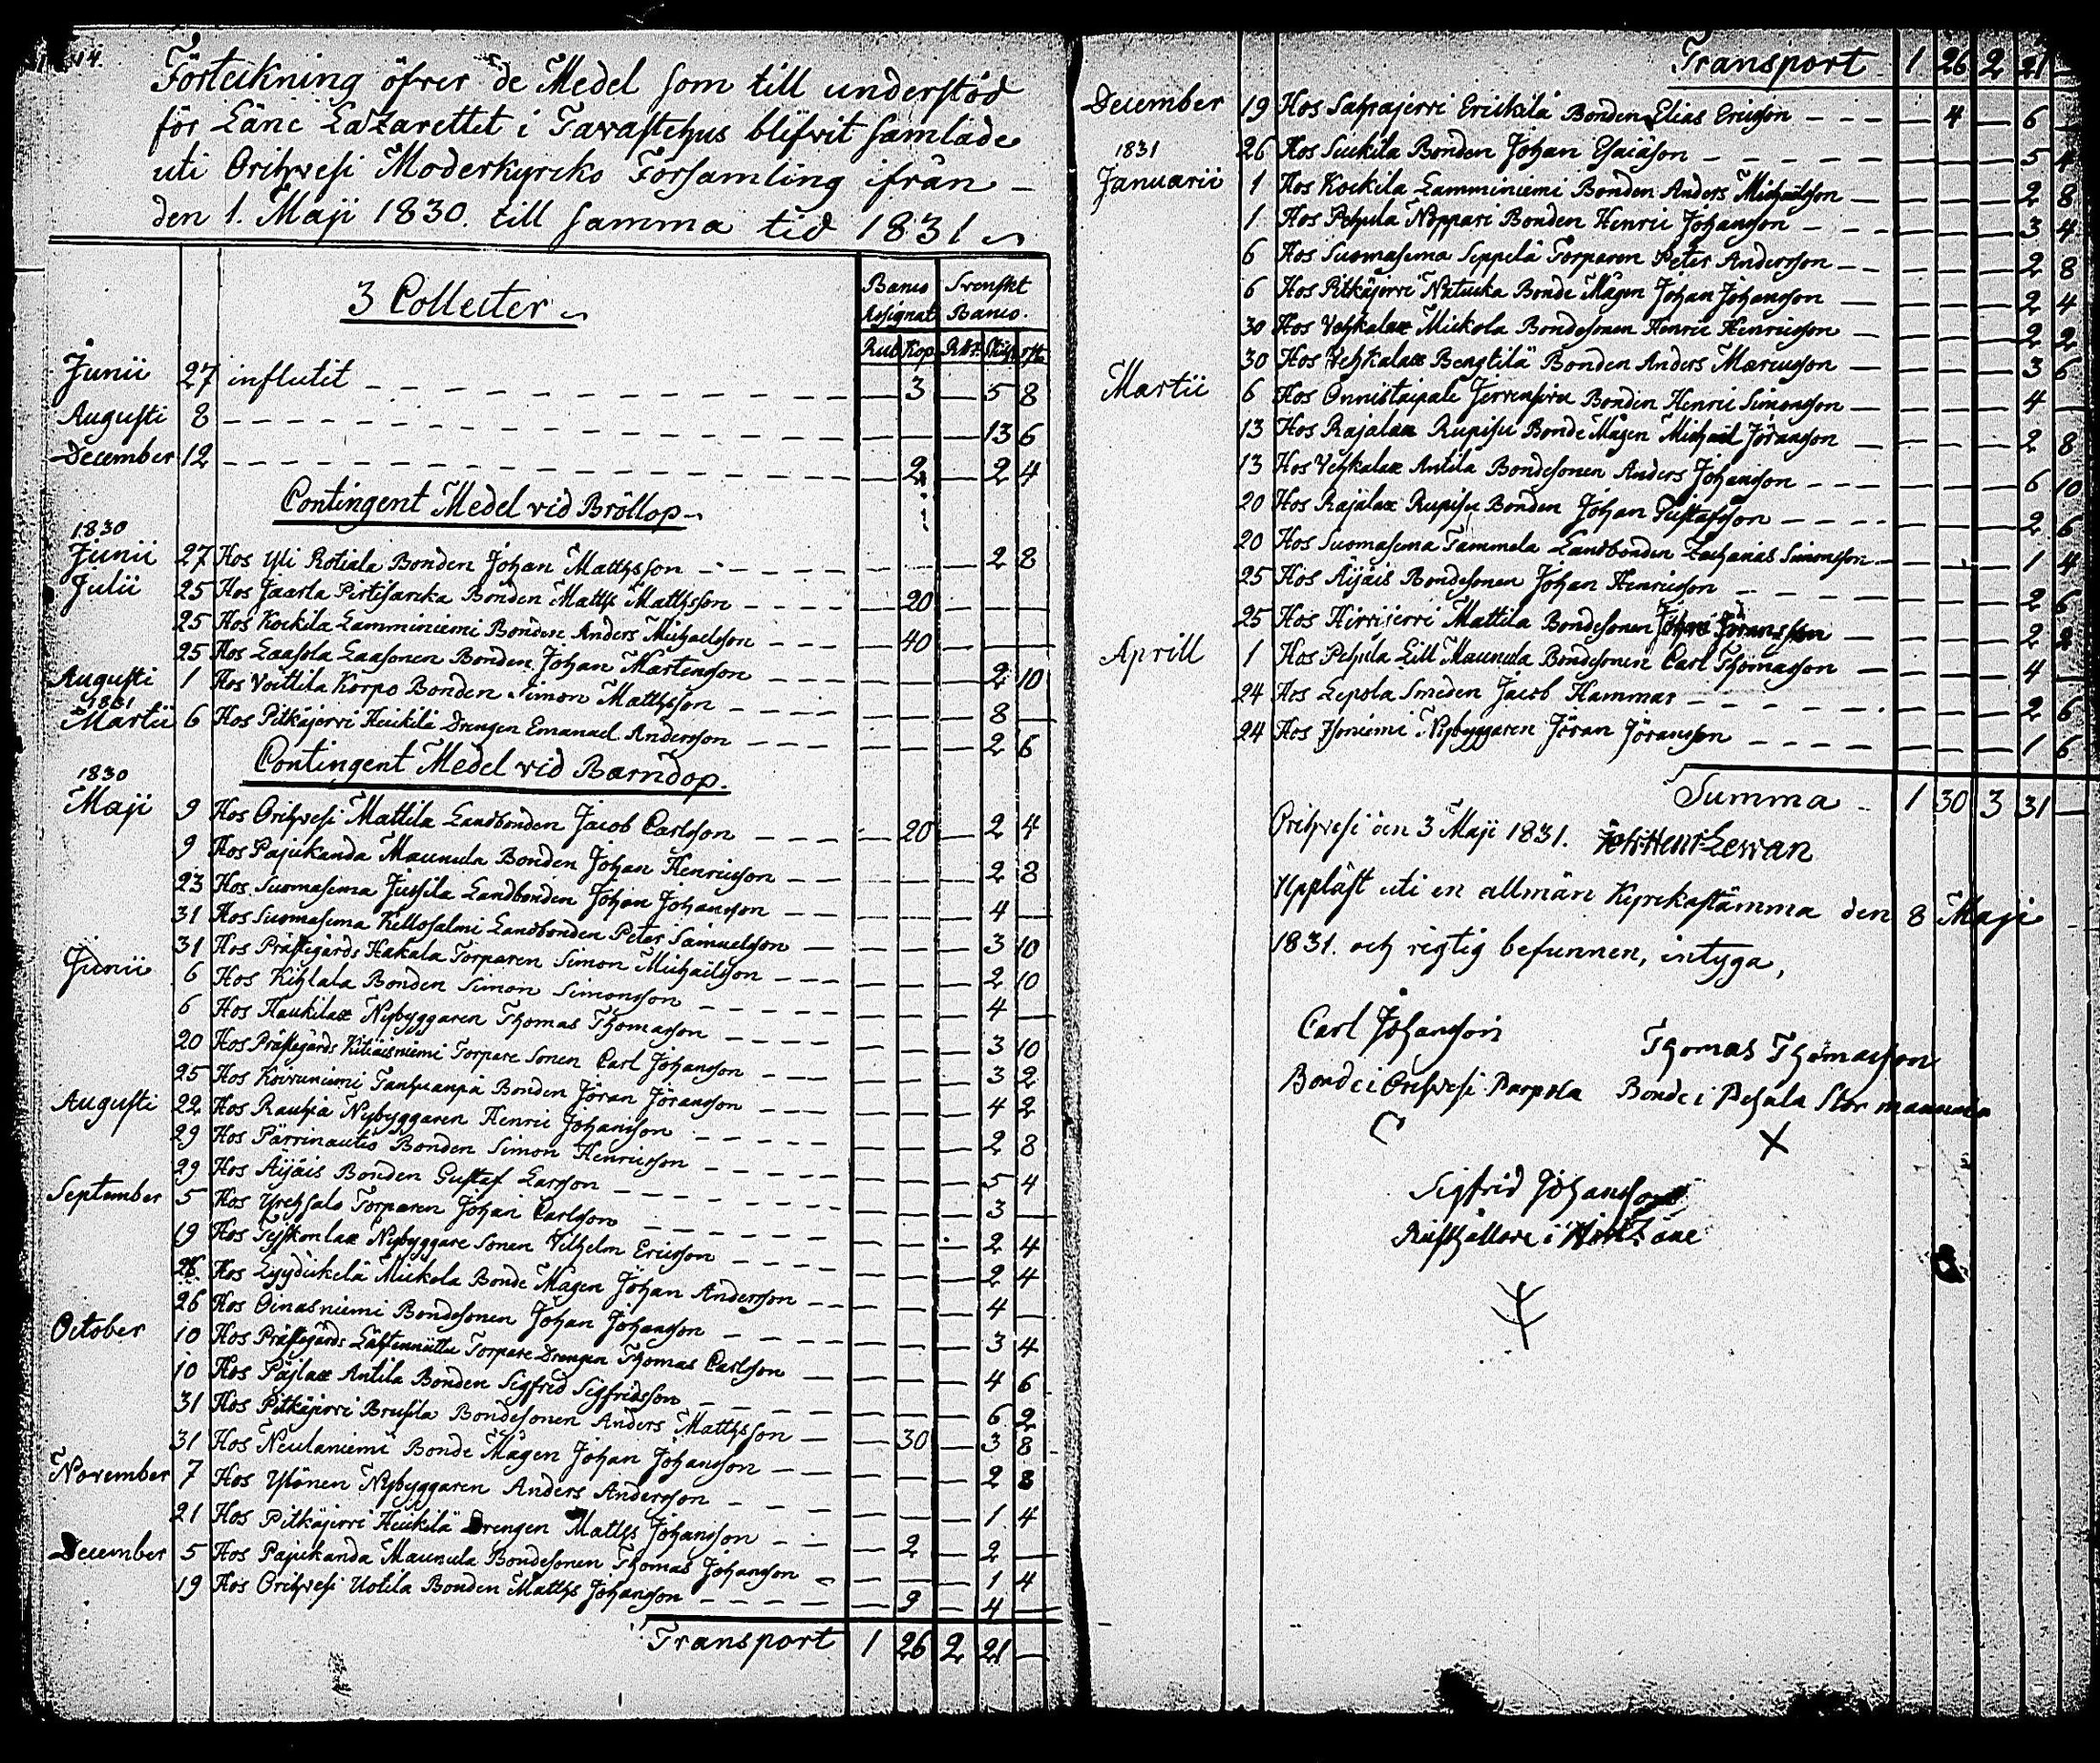 14.
Förteckning öfver de Medel som till understöd
för Läne Lazarettet i Tavastehus blifvit samlade
uti Orihvesi Moderkyrko Församling ifrån
den 1. Maji 1830. till samma tid 1831
3 Collecter
Banco Assignat. Svenskt Banco.
Rub Kop Rdr. Skill. rst.
Junii 27 influtit — 3 — 5 8
Augusti 8 — — — 13 6
December 12 — 2 — 2 4
Contingent Medel vid Bröllop
1830
Junii 27 Hos Yli Rotiala Bonden Johan Matthsson — — — 2 8
Julii 25 Hos Jaarla Pirtisarcka Bonden Matths Matthsson — 20 — — —
25 Hos Kockila Lamminiemi Bonden Anders Michaelsson — 40 — — —
25 Hos Laasola Laasonen Bonden Johan Mårtensson — — — 2 10
Augusti 1 Hos Voittila Korpo Bonden Simon Matthsson — — — 8 —
1831
Martii 6 Hos Pitkäjervi Heickilä Drengen Emanuel Andersson — — — 2 6
Contingent Medel vid Barndop.
1830
Maji 9 Hos Orihvesi Mattila Landbonden Jacob Carlsson — 20 — 2 4
9 Hos Pajukanda Maunula Bonden Johan Henricsson — — — 2 8
23 Hos Suomasema Jussila Landbonden Johan Johansson — — — 4 —
31 Hos Suomasema Kellosalmi Landbonden Peter Samuelsson — — — 3 10
31 Hos Prästegårds Hakala Torparen Simon Michaëlsson — — — 2 10
Junii 6 Hos Kihlala Bonden Simon Simonsson — — — 4 —
6 Hos Haukilax Nybyggaren Thomas Thomasson — — — 3 10
20 Hos Prästegårds Kitiäisniemi Torpare Sonen Carl Johansson — — — 3 2
25 Hos Koivuniemi Tanhuanpä Bonden Jöran Jöransson — — — 4 2
Augusti 22 Hos Rauhia Nybyggaren Henric Johansson — — — 2 8
29 Hos Pärrinautio Bonden Simon Henricsson — — — 5 4
29 Hos Äijäis Bonden Gustaf Larsson — — — 3 —
September 5 Hos Torparen Johan Carlsson — — — 2 4
19 Hos Nybyggare Sonen Vilhelm Ericsson — — — 2 4
26 Hos Lyydickelä Mickola Bonde Mågen Johan Andersson — — — 4 —
26 Hos Oinasniemi Bondesonen Johan Johansson — — — 3 4
October 10 Hos Prästegårds Torpare Drengen Thomas Carlsson — — — 4 6
10 Hos Päjlax Antila Bonden Sigfrid Sigfridsson — — — 6 2
31 Hos Pitkäjervi Brusila Bondesonen Anders Matthsson — 30 — 3 8
31 Hos Neulaniemi Bonde Mågen Johan Johansson — — — 2 8
November 7 Hos Ylönen Nybyggaren Anders Andersson — — — 1 4
21 Hos Pitkäjervi Heickilä Drengen Matths Johansson — 2 — 2 —
December 5 Hos Pajukanda Maunula Bondesonen Thomas Johansson — — — 1 4
19 Hos Orihvesi Uotila Bonden Matths Johansson — 9 — 4 —
Transport 1 26 2 21 —
Transport 1 26 2 21 —
December 19 Hos Sahrajervi Erickilä Bonden Elias Ericsson — 4 — 6 —
26 Hos Suckila Bonden Johan Esaiäson — — — 5 4
1831
Januarii 1 Hos Kockila Lamminiemi Bonden Anders Michaëlsson — — — 2 8
1 Hos Pehula Noppari Bonden Henric Johansson — — — 3 4
6 Hos Suomasema Seppelä Torparen Peter Andersson — — — 2 8
6 Hos Pitkäjervi Bonde Mågen Johan Johansson — — — 2 4
30 Hos Vehkalax Mickola Bondesonen Henric Henricsson — — — 2 2
30 Hos Vehkalax Bengtilä Bonden Anders Marcusson — — — 3 6
Martii 6 Hos Onnistaipale Jervensivu Bonden Henric Simonsson — — — 4 —
13 Hos Rajalax Rupisu Bonde Mågen Michael Jöransson — — — 2 8
13 Hos Vehkalax Antila Bondesonen Anders Johansson — — — 6 10
20 Hos Rajalax Rupisu Bonden Johan Gustafsson — — — 2 6
20 Hos Suomasema Tammela Landbonden Zacharias Simonsson — — — 1 4
25 Hos Äijäis Bondesonen Johan Henricsson — — — 2 6
25 Hos Hirvijervi Mattila Bondesonen Johan Jöransson — — — 2 2
Aprill 1 Hos Pehula Lill Maunula Bondesonen Carl Thomasson — — — 4 —
24 Hos Lepola Smeden Jacob Hammar — — — 2 6
24 Hos Isoniemi Nybyggaren Jöran Jöransson — — — 1 6
Summa 1 30 3 31 —
Orihvesi den 3 Maji 1831. Joh: Henr: Lewan
Uppläst uti en allmän Kyrckostämma den 8 Maji
1831. och rigtig befunnen, intyga,
Carl Johansson Thomas Thomasson
Bonde i Orihvesi Parpola Bonde i Pehula Stor maunula
X
Sigfrid Johansson
Rusthållare i